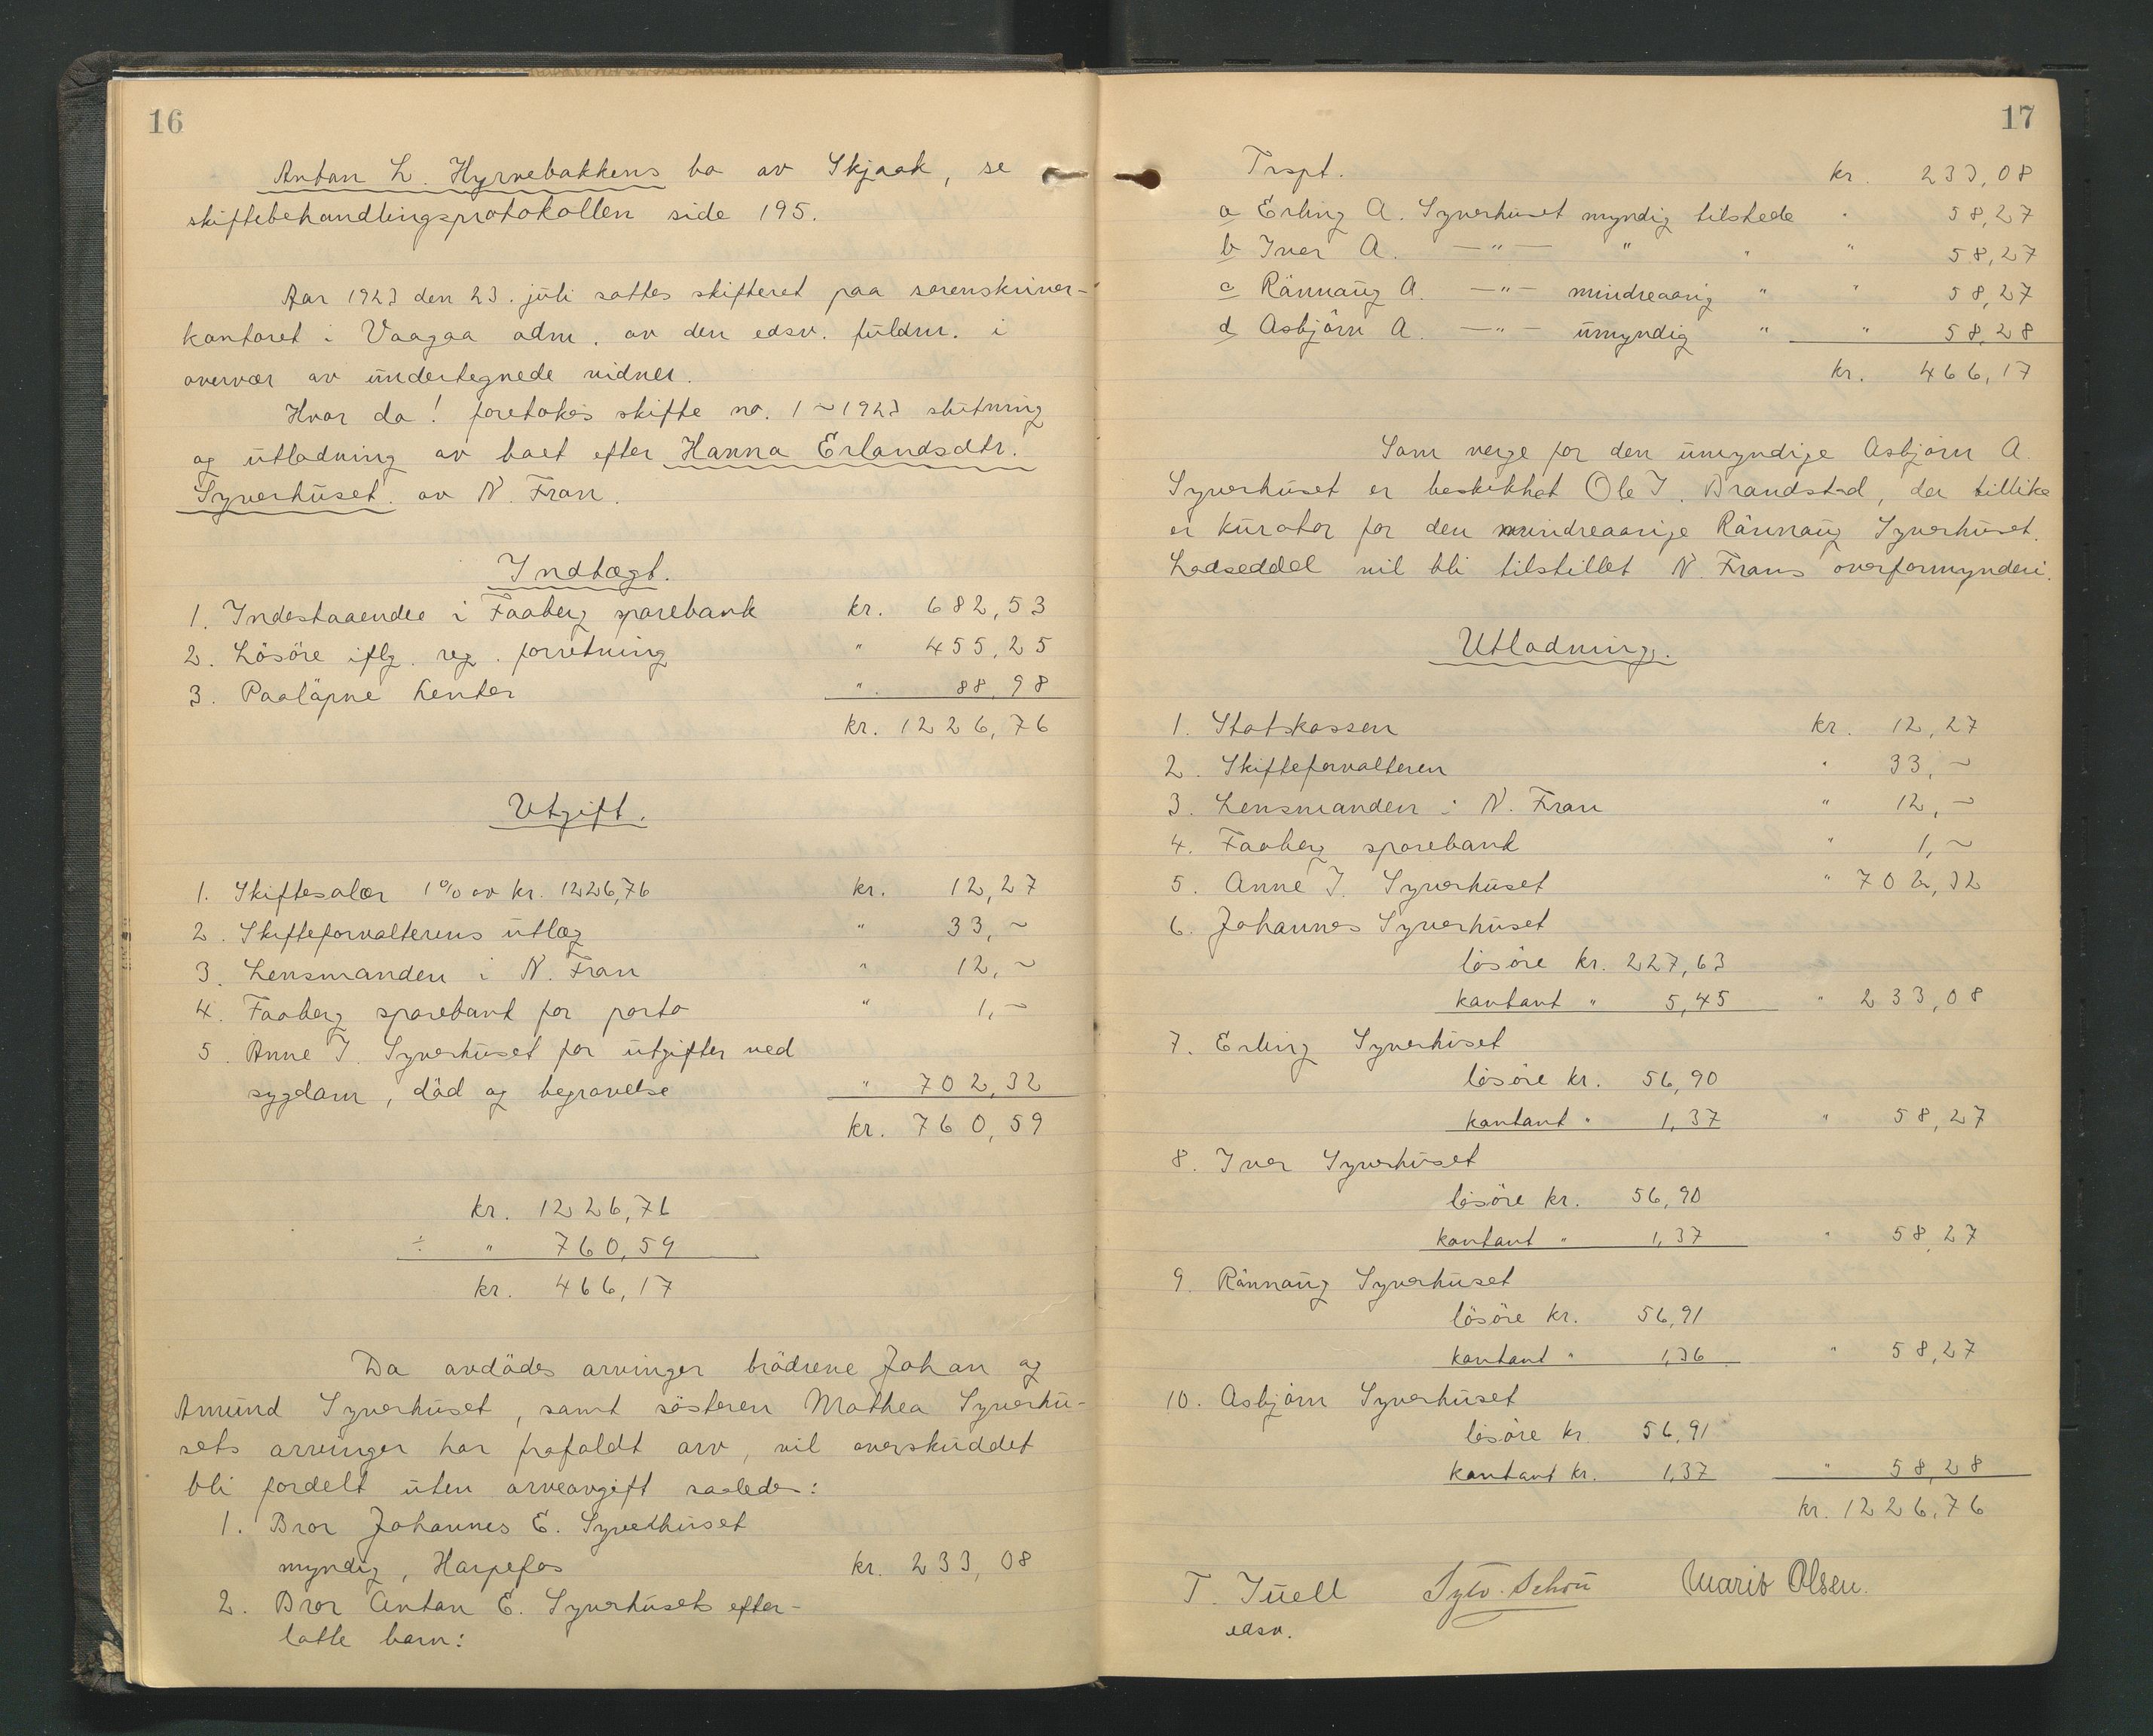 16
Anton L. Hyrnebakkens bo av Skjaak, se
skiftebehandlingsprotokollen side 195.
Aar 1923 den 23. juli sattes skifteret paa sorenskriver-
kontoret i Vaagaa adm. av den edsv. fuldm. i
overvær av undertegnede vidner.
Hvor da! foretokes skifte no. 1 ~ 1923 slutning
og utlodning av boet efter Hanna Erlandsdtr.
Syverhuset. av N. Fron.
Indtægt.
1. Indestaaendee i Faaberg sparebank kr. 682,53
2. Lösöre iflg. reg. forretning " 455,25
3. Paaløpne renter " 88,98
kr. 1226,76
Utgift.
1. Skiftesalær 1% av kr. 1226,76 kr. 12,27
2. Skifteforvalterens utlæg " 33,~
3. Lensmanden i N. Fron " 12,~
4. Faaberg sparebank for porto " 1,~
5. Anne I. Syverhuset for utgifter ved
sygdom, död og begravelse " 702,32
kr. 760,59
kr. 1226,76
÷ " 760,59
kr. 466,17
Da avdödes arvinger brödrene Johan og
Amund Syverhuset, samt sösteren Mathea Syverhu-
sets arvinger har frafaldt arv, vil overskuddet
bli fordelt uten arveavgift saaledes:
1. Bror Johannes E. Syverhuset
myndig, Harpefos kr. 233,08
2. Bror Anton E. Syverhusets efter-
latte barn:
17
Trspt. kr. 233,08
a Erling A. Syverhuset myndig tilstede " 58,27
b Iver A. —"— " " " 58,27
c Rönnaug A. —"— mindreaarig " " 58,27
d Asbjörn A. —"— umyndig " " 58,28
kr. 466,17
Som verge for den umyndige Asbjörn A.
Syverhuset er beskikket Ole I. Brandstad, der tillike
er kurator for den mindreaarige Rönnaug Syverhuset.
Lodseddel vil bli tilstillet N. Frons overformynderi.
Utlodning.
1. Statskassen kr. 12,27
2. Skifteforvalteren " 33,~
3. Lensmanden i N. Fron " 12,~
4. Faaberg sparebank " 1,~
5. Anne I. Syverhuset " 702,32
6. Johannes Syverhuset
lösöre kr. 227,63
kontant " 5,45 " 233,08
7. Erling Syverhuset
lösöre kr. 56,90
kontant " 1,37 " 58,27
8. Iver Syverhuset
lösöre kr. 56,90
kontant " 1,37 " 58,27
9. Rönnaug Syverhuset
lösöre kr. 56,91
kontant " 1,36 " 58,27
10. Asbjörn Syverhuset
lösöre kr. 56,91
kontant kr. 1,37 " 58,28
kr. 1226,76
T. Juell Sylv. Schou Marit Olsen.
edsv.